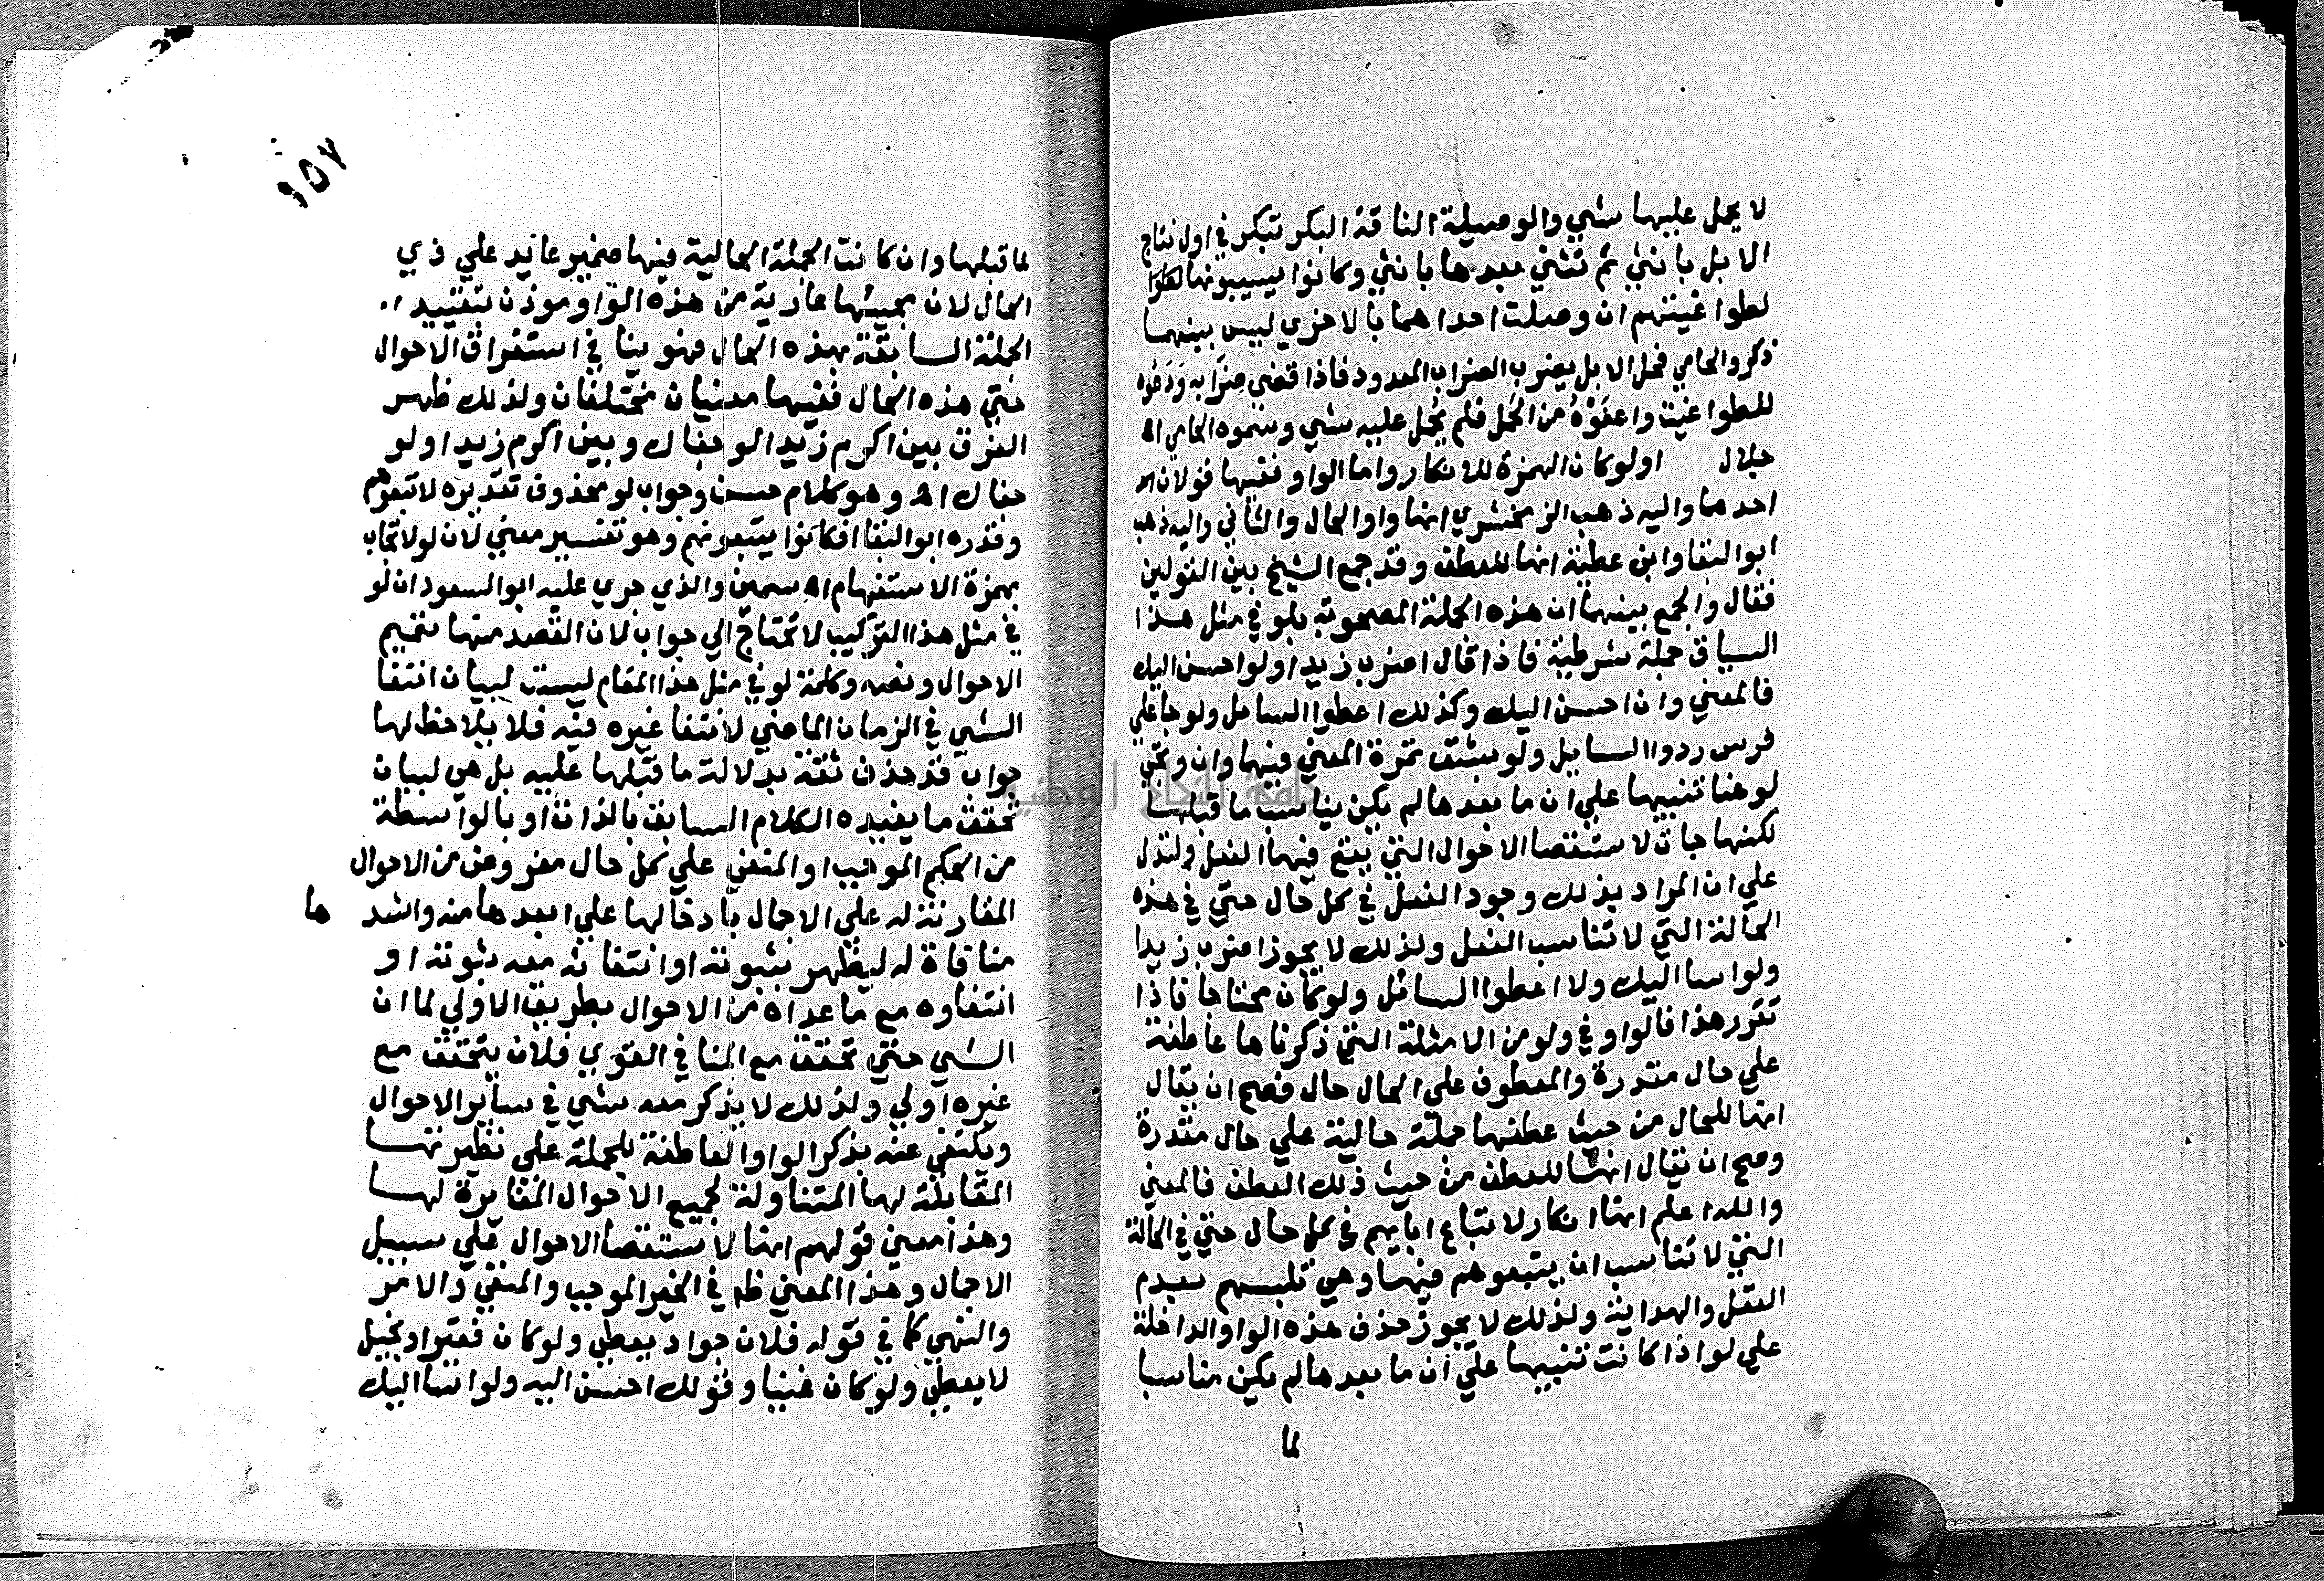 لا يحمل عليها شي والوصيلة الناقة البكر تبكر في اول نتاج
الابل بانثي ثم تثني بعدها بانثي وكانوا يسيبونها
لطواغيتهم ان وصلت احداهما بالاخري ليس بينهما
ذكر والحامي فحل الابل يضرب الضراب المعدود فاذا قضي ضرابه ودعوه
للطواغيت واعفوه من الحمل فلم يحمل عليه شي وسموه الحامي اه
جلال اولوكان الهمزة للانكار واما الواو ففيها قولان
احدهما واليه ذهب الزمخشري انها واو الحال والثاني واليه ذهب
ابو البقا وابن عطية انها للعطف وقد جمع الشيخ بين القولين
فقال والجمع بينهما ان هذه الجملة المصحوبة بلو في مثل هذا
السياق جملة شرطية فاذا قال اضرب زيدا ولو احسن اليك
فالمعني وان احسن اليك وكذلك اعطوا السائل ولو جا علي
فرس ردوا السايل ولو بشق تمرة المعني فيها وان وتجي
لو هنا تنبيها علي ان ما بعدها لم يكن يناسب ما قبلها
لكنها جات لاستقصا الاحوال التي يقع فيها الفعل ولتدل
علي ان المراد بذلك وجود الفعل في كل حال حتي في هذه
الحالة التي لا تناسب الفعل ولذلك لا يجوز اضرب زيدا
ولو اسا اليك ولا اعطوا السائل ولو كان محتاجا فاذا
تقرر هذا فالواو في ولو من الامثلة التي ذكرناها عاطفة
علي حال مقدرة والمعطوف علي الحال حال فصح ان يقال
انها للحال من حيث عطفها جملة حالية علي حال مقدرة
وصح ان يقال انها للعطف من حيث ذلك العطف فالمعني
والله اعلم انها انكار لاتباع ابايهم في كل حال حتي في الحالة
التي لا تناسب ان يتبعوهم فيها وهي تلبسهم بعدم
العقل والهداية ولذلك لا يجوز حذف هذه الواو الداخلة
علي لو اذا كانت تنبيها علي ان ما بعدها لم يكن مناسبا
لما
١٥٧
لما قبلها وان كانت الجملة الحالية فيها ضمير عايد علي ذي
الحال لان مجيئها عارية من هذه الواو موذن بتقييد
الجملة السابقة بهذه الحال فهو ينافي استغراق الاحوال
حتي هذه الحال ففيها معنيان مختلفان ولذلك ظهر
الفرق بين اكرم زيدا لو جفاك وبين اكرم زيدا ولو
جفاك اه وهو كلام حسن وجواب لو محذوف تقديره لاتبعوهم
وقدره ابو البقا افكانوا يتبعونهم وهو تفسير معني لان لو لا تجاب
بهمزة الاستفهام اه سمين والذي جري عليه ابو السعود ان لو
في مثل هذا التركيب لا تحتاج الي جواب لان القصد منها تعميم
الاحوال ونصه وكلمة لو في مثل هذا المقام ليست لبيان انتفا
الشي في الزمان الماضي لانتفا غيره فيه فلا يلاحظ لها
جواب قد حذف ثقة بدلالة ما قبلها عليه بل هي لبيان
تحقق ما يفيده الكلام السابق بالذات او بالواسطة
من الحكم الموجب او المنفي علي كل حال مفروض من الاحوال
المقارنة له علي الاجمال بادخالها علي ابعدها منه واشد ها
منافاة له ليظهر بثبوته او انتفائه معه ثبوته او
انتفاوه مع ما عداه من الاحوال بطريق الاولي لما ان
الشي متي تحقق مع المنافي القوي فلان يتحقق مع
غيره اولي ولذلك لا يذكر معه شي في ساير الاحوال
ويكتفي عنه بذكر الواو العاطفة للجملة علي نظيرتها
المقابلة لها المتناولة لجميع الاحوال المغايرة لها
وهذا معني قولهم انها لاستقصا الاحوال علي سبيل
الاجمال وهذا المعني ظه في الخبر الموجب والمنفي والامر
والنهي كما في قوله فلان جواد يعطي ولو كان فقيرا وبخيل
لا يعطي ولو كان غنيا وقولك احسن اليه ولو اسا اليك